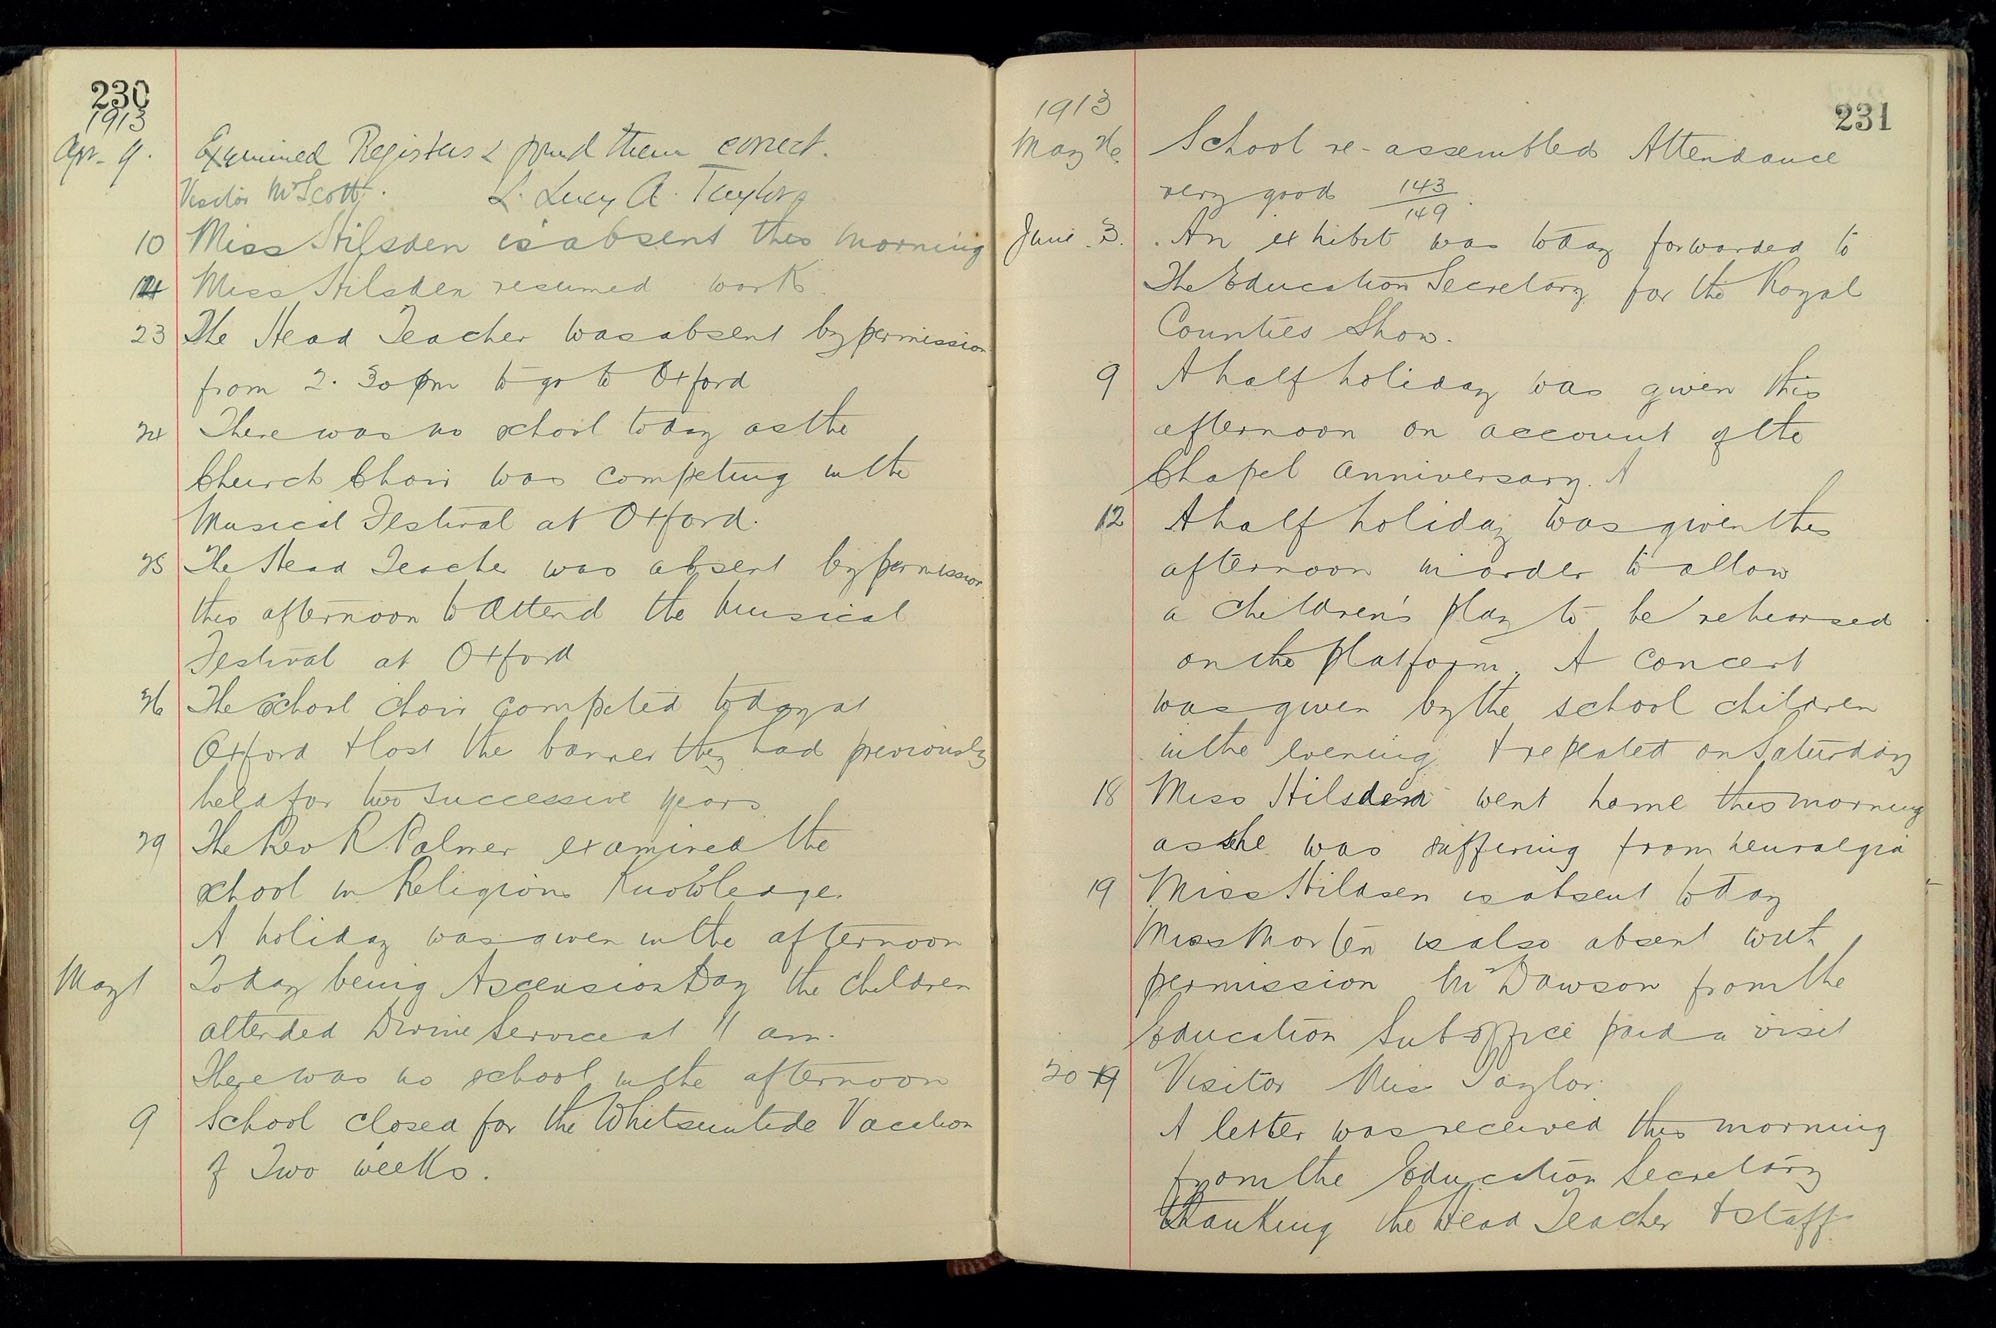 230
1913
Apr. 9. Examined Registers & found them correct.
Visitor Mr Scott. S. Lucy A. Taylor
10 Miss Hilsden is absent this morning
14 Miss Hilsden resumed work.
23 The Head Teacher was absent by permission
from 2.30 pm to go to Oxford
24 There was no school today as the
Church Choir was competing in the
Musical Festival at Oxford.
25 The Head Teacher was absent by permission
this afternoon to attend the Musical
Festival at Oxford
26 The school choir competed today at
Oxford & lost the banner they had previously
held for two successive years
29 The Rev R. Palmer examined the
school in Religious Knowledge.
A holiday was given in the afternoon
May 1 Today being Ascension Day the children
attended Divine Service at 11 am.
There was no school in the afternoon
9 School closed for the Whitsuntide Vacation
of Two weeks.
231
1913
May 26 School re-assembled Attendance
very good 143/149.
June 3. An exhibit was today forwarded to
The Education Secretary for the Royal
Counties Show.
9 A half holiday was given this
afternoon on account of the
Chapel Anniversary. A
12 A half holiday was given this
afternoon in order to allow
a children's play to be rehearsed
on the platform. A concert
was given by the school children
in the evening & repeated on Saturday
18 Miss Hilsden went home this morning
as she was suffering from neuralgia
19 Miss Hildsen is absent today
Miss Morten is also absent with
permission Mr Dawson from the
Education Sub office paid a visit
20 19 Visitor Miss Taylor.
A letter was received this morning
from the Education Secretary
thanking the Head Teacher & staff